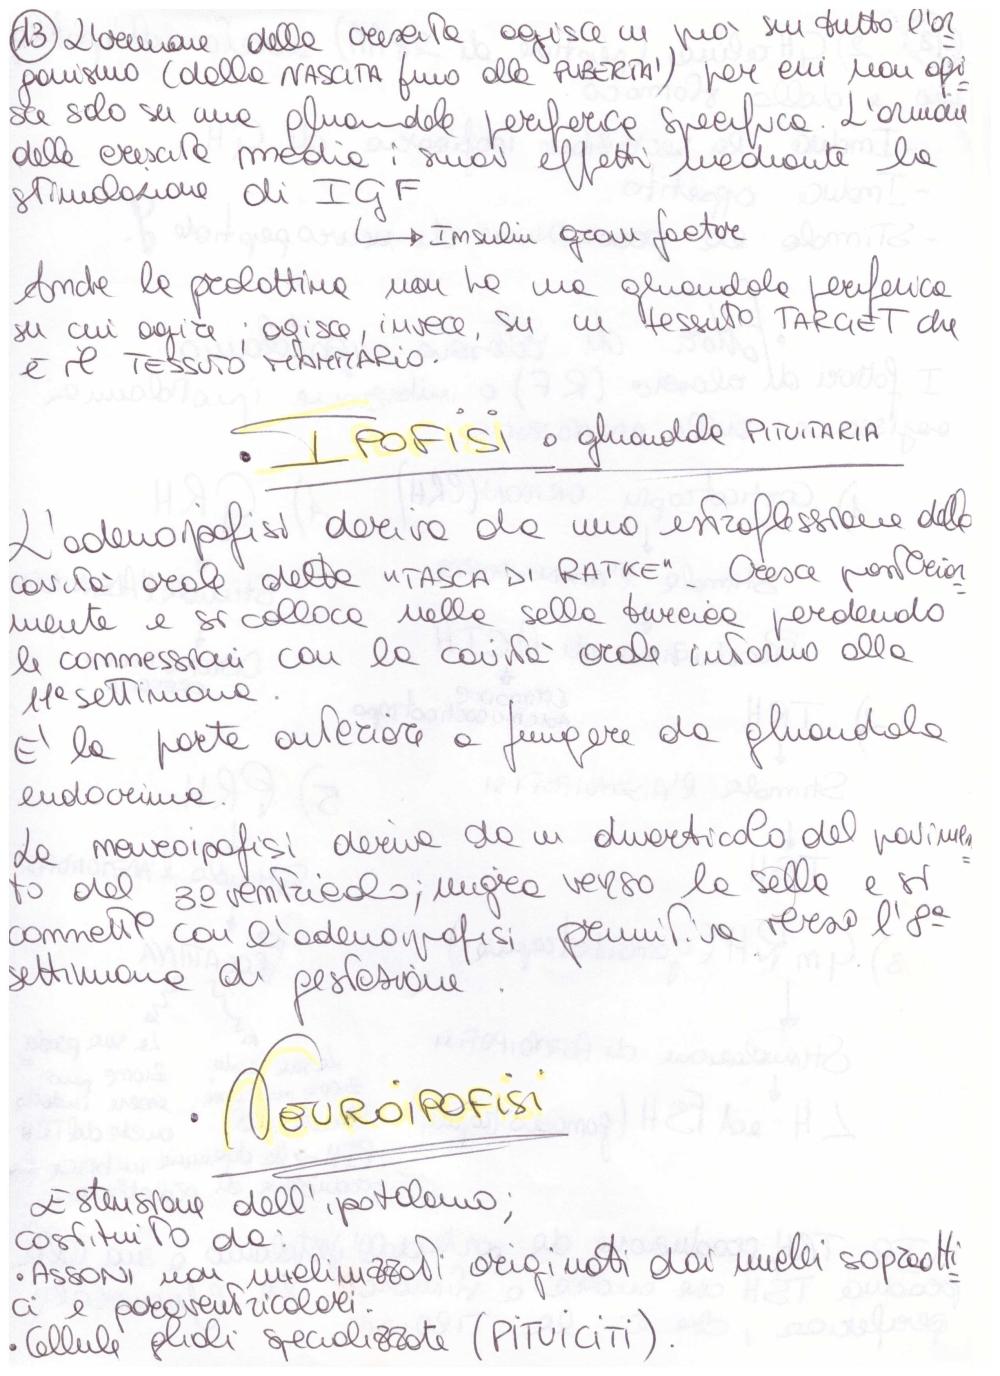 d3 L'ormone della crescita agisce un po' su tutto l'or=
ganismo (dalla NASCITA fino alla PUBERTA') per cui non agi=
sce solo su una ghiandola periferica specifica. L'ormone
della crescita media i suoi effetti mediante la
stimolazione di IGF
→ Insulin grow factor
Anche la prolattina non ha una ghiandola periferica
su cui agire; agisce, invece, su un tessuto TARGET che
è il TESSUTO MAMMARIO.
• IPOFISI o ghiandola PITUITARIA
L'adenoipofisi deriva da una estroflessione della
cavità orale detta "TASCA DI RATKE". Cresce posterior=
mente e si colloca nella sella turcica perdendo
le connessioni con la cavità orale intorno alla
11ª settimana.
E' la parte anteriore a fungere da ghiandola
endocrina.
La neuroipofisi deriva da un diverticolo del pavimen=
to del 3º ventricolo; migra verso la sella e si
connette con l'adenoipofisi primitiva verso l'8ª
settimana di gestazione.
• NEUROIPOFISI
Estensione dell'ipotalamo;
costituito da:
• ASSONI non mielinizzati originati dai nuclei sopraotti=
ci e paraventricolari.
• Cellule gliali specializzate (PITUICITI).